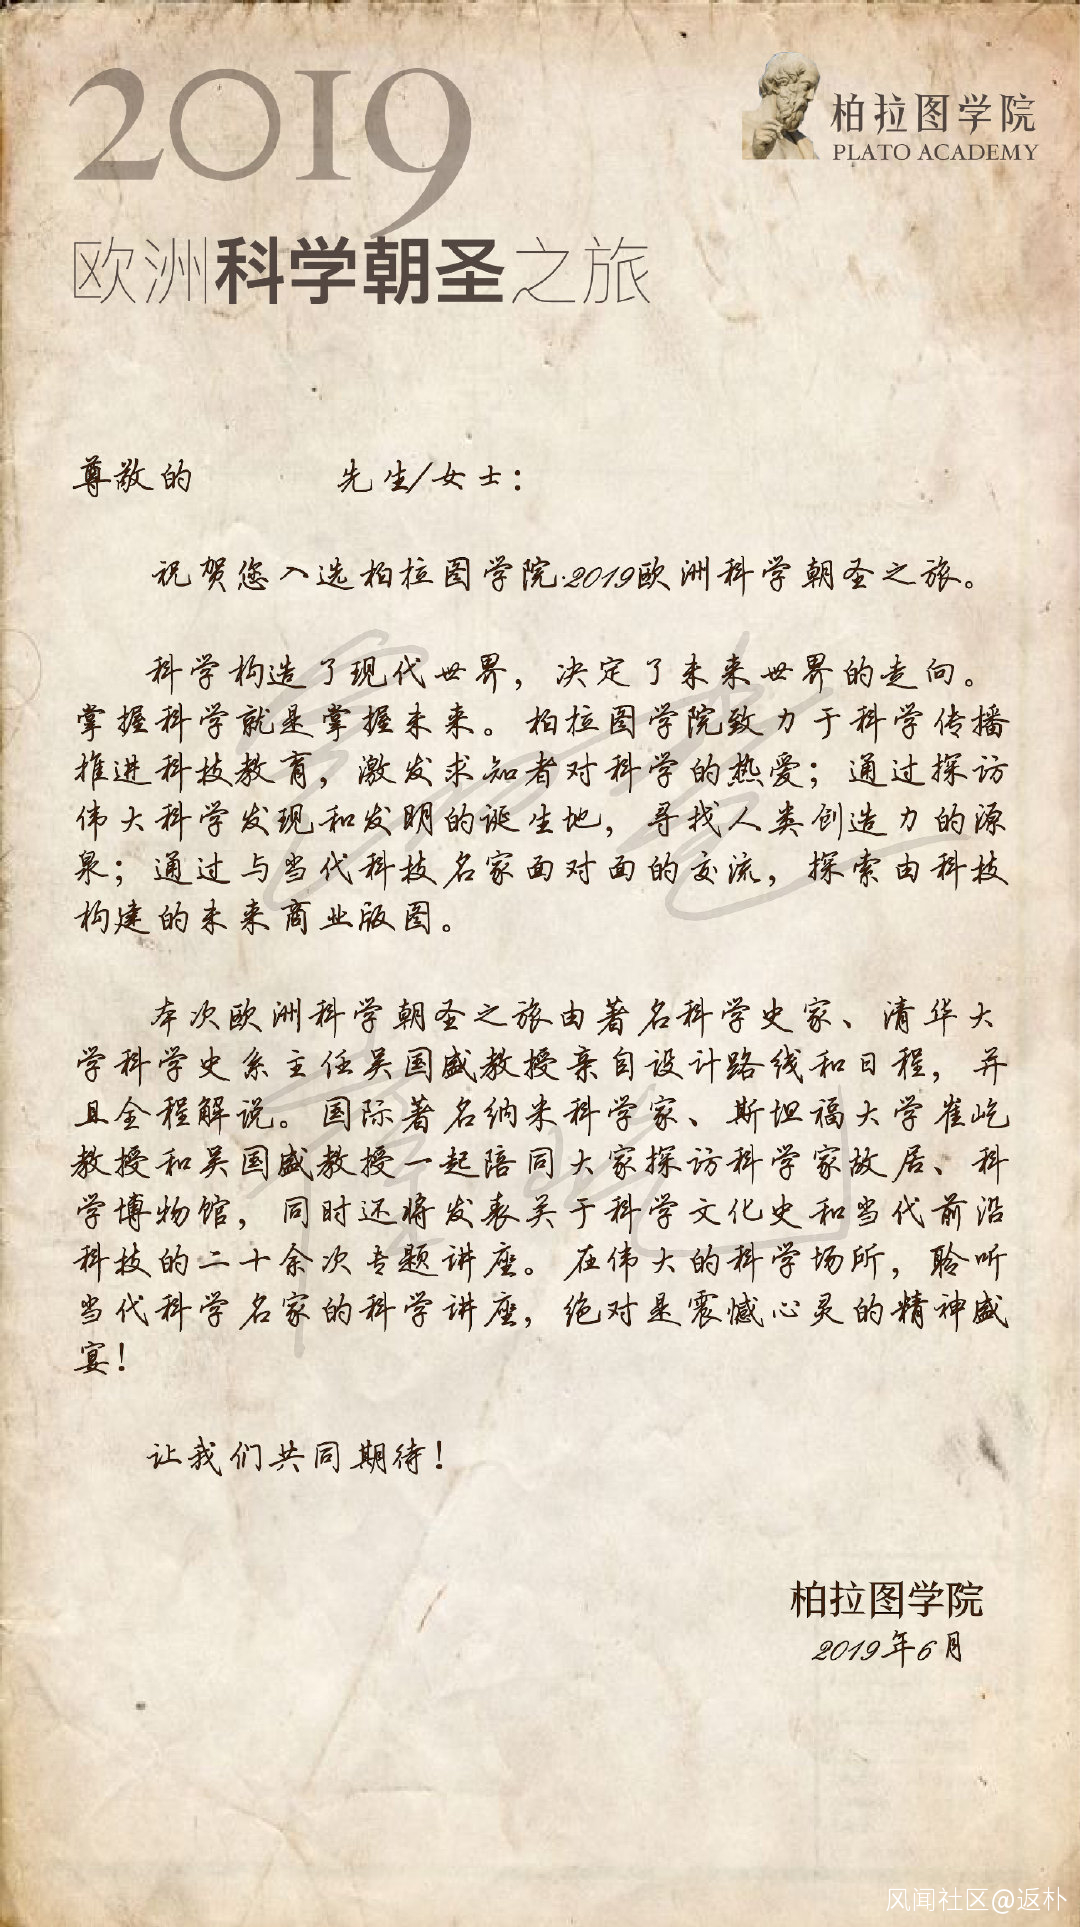 2019
柏拉图学院
PLATO ACADEMY
欧洲科学朝圣之旅
尊敬的 先生/女士：
祝贺您入选柏拉图学院·2019欧洲科学朝圣之旅。
科学构造了现代世界，决定了未来世界的走向。
掌握科学就是掌握未来。柏拉图学院致力于科学传播
推进科技教育，激发求知者对科学的热爱；通过探访
伟大科学发现和发明的诞生地，寻找人类创造力的源
泉；通过与当代科技名家面对面的交流，探索由科技
构建的未来商业版图。
本次欧洲科学朝圣之旅由著名科学史家、清华大
学科学史系主任吴国盛教授亲自设计路线和日程，并
且全程解说。国际著名纳米科学家、斯坦福大学崔屹
教授和吴国盛教授一起陪同大家探访科学家故居、科
学博物馆，同时还将发表关于科学文化史和当代前沿
科技的二十余次专题讲座。在伟大的科学场所，聆听
当代科学名家的科学讲座，绝对是震憾心灵的精神盛
宴！
让我们共同期待！
柏拉图学院
2019年6月
风闻社区@返朴